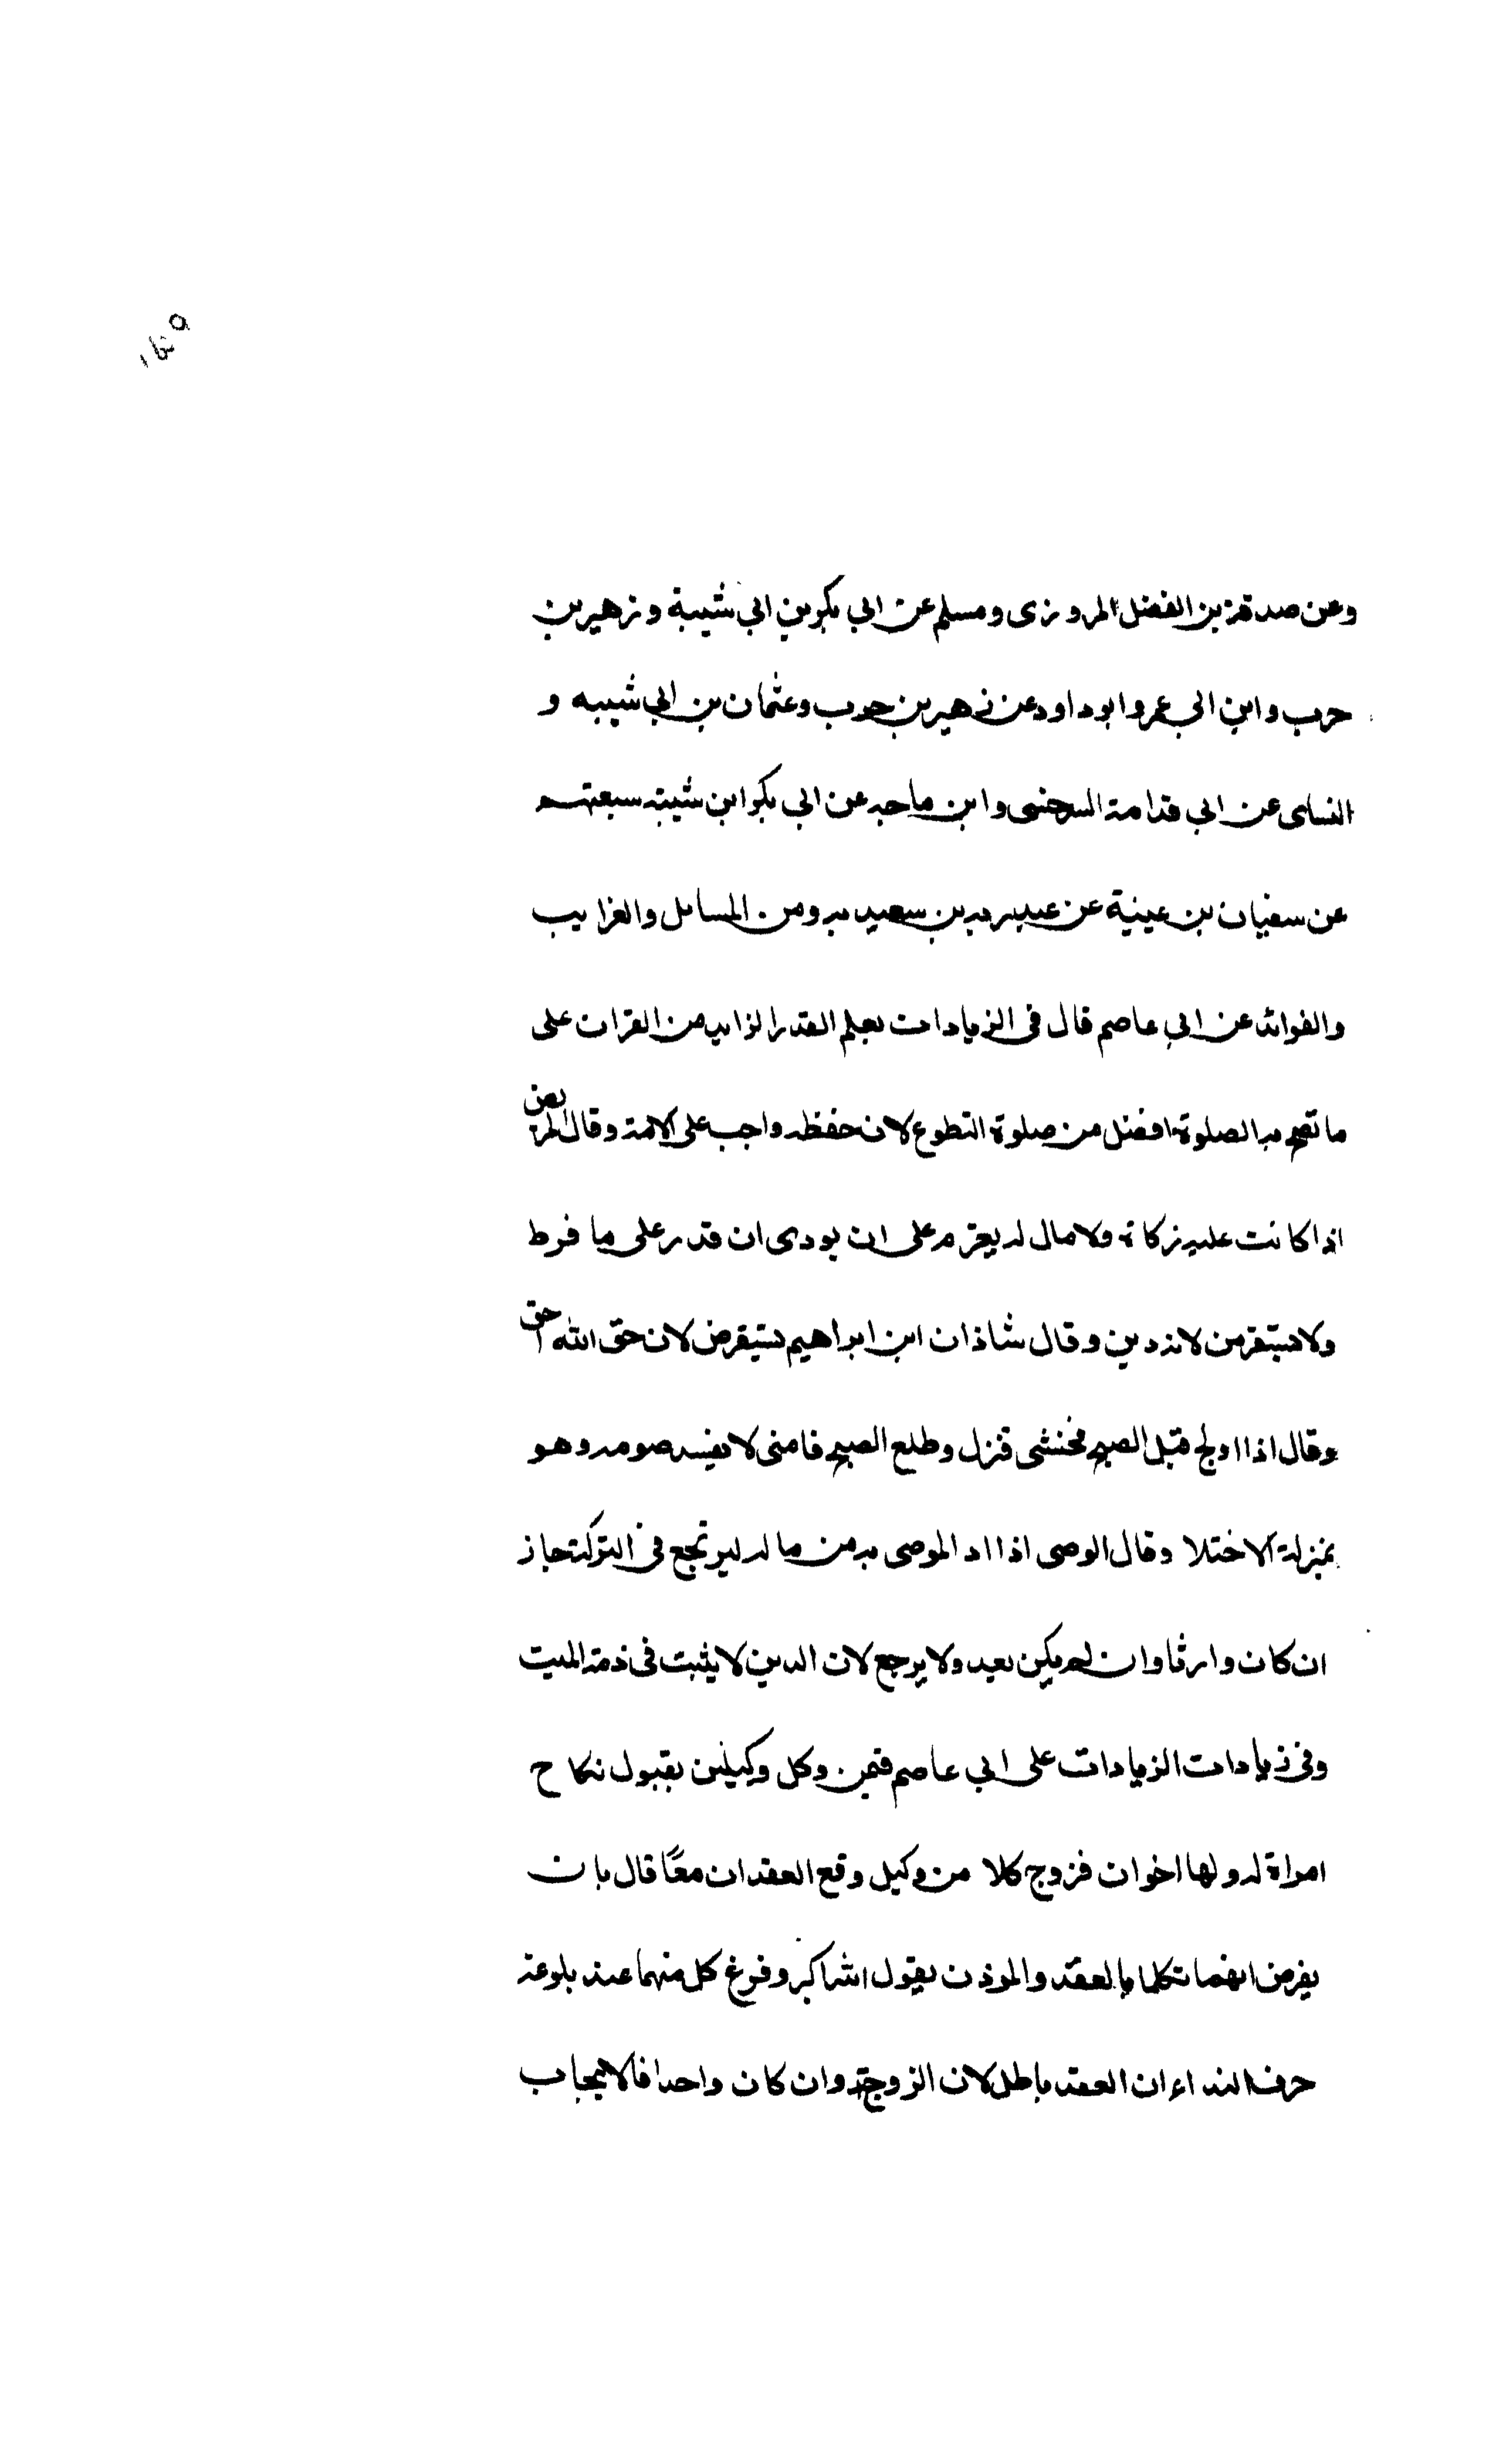 وعن صدقة بن الفضل المروزى ومسلم عن ابي بكر بن ابي شيبة وزهير بن
حرب وابن ابي عمر وابو داود عن زهير بن حرب وعثمان بن ابي شيبه و
النساى عن ابي قدامة السرخسى وابن ماجه عن ابي بكر ابن شيبة سبعتهم
عن سفيان بن عينية عن عبيد بن سعيد به ومن المسايل والغرايب
والفوائد عن ابي عاصم قال فى الزيادات تعلم القدر الزايد من القران على
ما تصح به الصلوة افضل من صلوة التطوع لان حفظه واجب على الامة وقال المريض
اذا كانت عليه زكاة ولا مال له يعزم على ان يودى ان قدر على ما فرط
ولا يستقرض لانه دين وقال شاذان ابن ابراهيم يستقرض لان حق الله احق
وقال اذا اولج قبل الصبح فخشى فنزل وطلع الصبح فامنى لا يفسد صومه وهو
بمنزلة الاحتلا وقال الوصى اذا اد الموصى به من ماله ليرتجع فى التركة جاز
ان كان وارثا وان لم يكن بعيد ولا يرجع لان الدين لا يثبت فى ذمة الميت
وفى زيادات الزيادات على ابي عاصم فيمن وكل وكيلين بقبول نكاح
امراة له ولها اخوان فزوج كلا من وكيل وقع العقدان معًا قال بان
يفرض انهما تكلما بالعقد والموذن يقول الله اكبر وفرغ كل منهما عند بلوغه
حرف النداء ان العقد باطل لان الزوج وان كان واحدا فالايجاب